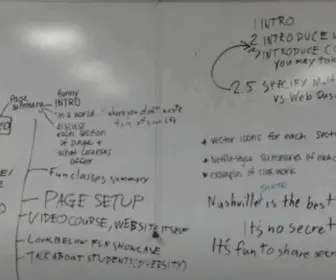 Page
summary
funny
INTRO
"in a world... where you don't waste
discuss
each section
of page +
what courses
offer
Fun classes summary
PAGE SETUP
VIDEO COURSE, WEBSITE ITSELF
LOOK BELOW FUN SHOWCASE
TALK ABOUT STUDENTS (DIVERSITY)
1 INTRO
2 INTRODUCE
INTRODUCE CO
you may tak
2.5 SPECIFY Mult
vs. Web Des
• vector icons for each sect
summaries of each
• examples of class work
Nashville is the best
It's no secre
It's fun to share secre